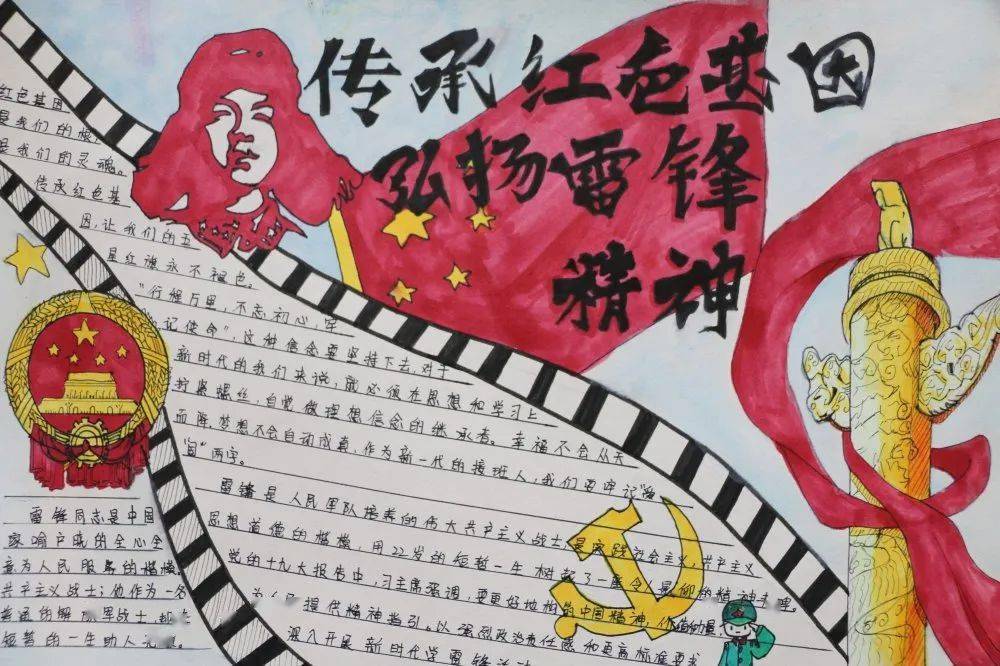 传承红色基因
弘扬雷锋
精神
红色基因
是我们的根
是我们的灵魂。
传承红色基
因,让我们的五
星红旗永不褪色。
"行程万里,不忘初心,牢
记使命",这种信念要坚持下去,对于
新时代的我们来说,就必须在思想和学习上
拧紧螺丝,自觉做理想信念的继承者。幸福不会从天
而降,梦想不会自动成真,作为新一代的接班人,我们要牢记
"两字。
雷锋是人民军队培养的伟大共产主义战士,是实践社会主义,共产主义
思想道德的楷模,用22岁的短暂一生树起了一座令人景仰的精神丰碑。
党的十九大报告中,习主席强调,要更好地构筑中国精神,价值力量,
为人民提供精神指引。以强烈政治责任感和更高标准要求
深入开展新时代学雷锋活动
雷锋同志是中国
家喻户晓的全心全
意为人民服务的楷模,
共产主义战士;他作为一名
普通的解放军战士,
短暂的一生助人无